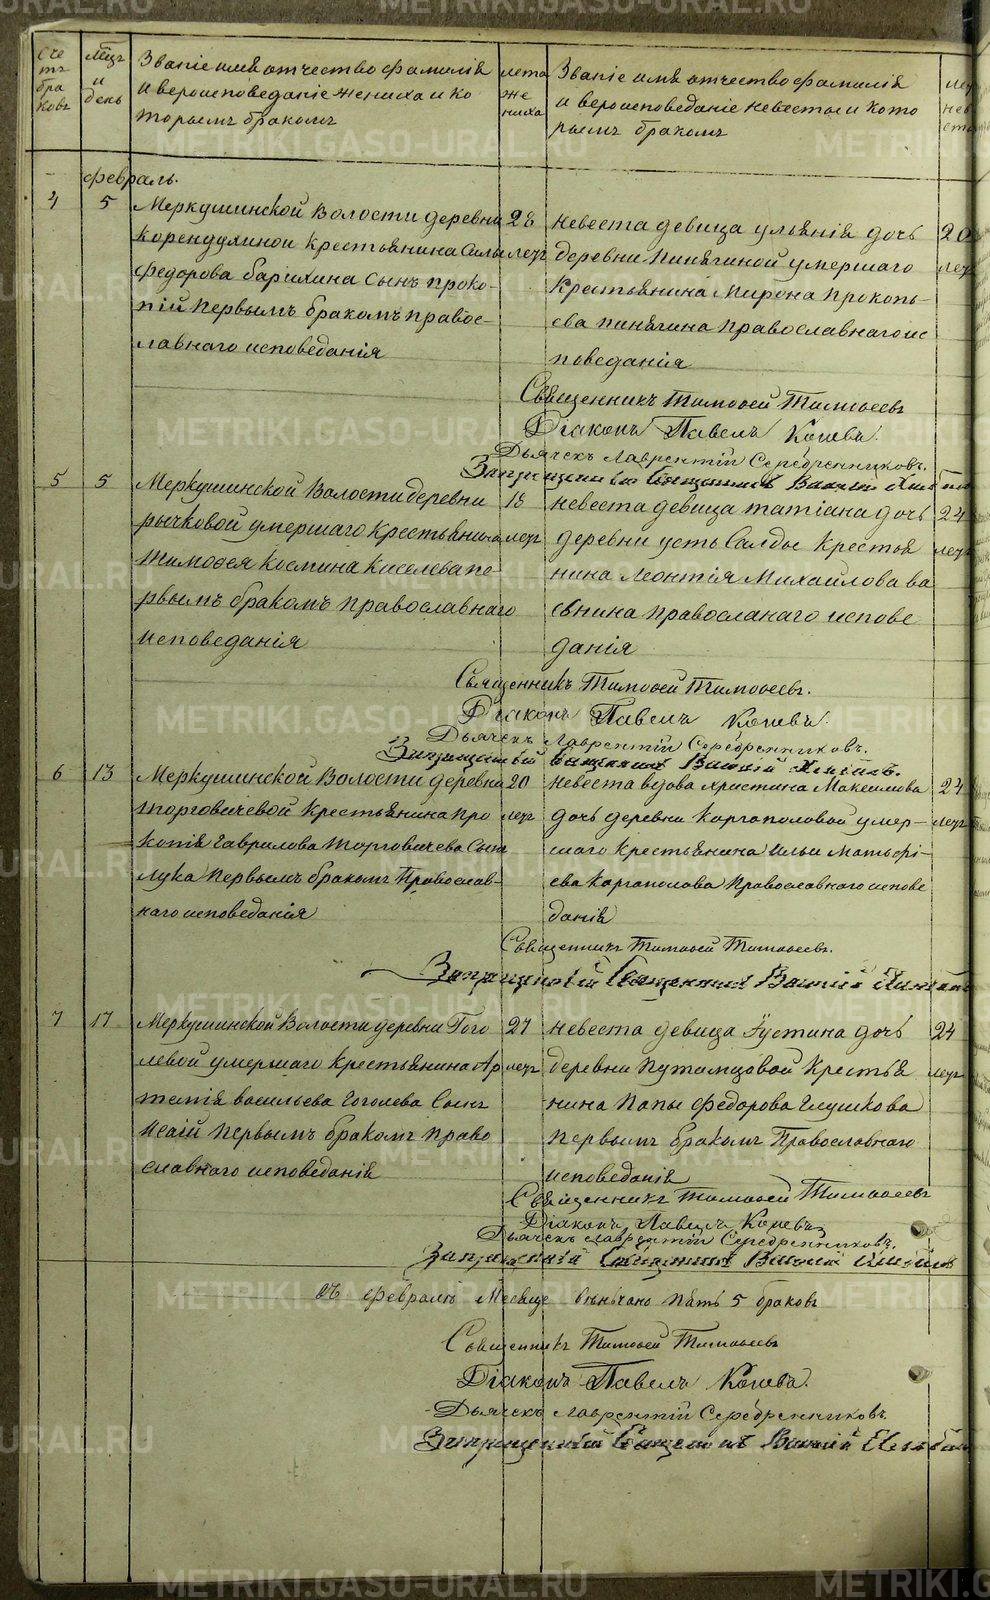 Сче
тъ
бра
ковъ
Мцъ
и
день
Званіе имя отчество фамилія
и вероисповеданіе жениха и ко
торымъ бракомъ
лета
же
ниха
Званіе имя отчество фамилія
и вероисповеданіе невесты и кото
рымъ бракомъ
лет
нев
есты
февраль.
4
5
Меркушинской Волости деревни
корендулиной крестьянина
федорова сынъ проко-
пій первымъ бракомъ правос-
лавнаго исповеданія
28
летъ
невеста девица ульянія дочь
деревни Пинягиной умершаго
крестьянина Мирона Прокопь-
ева пинягина православнаго ис
поведанія
20
лет
Священникъ Тимофей Тимофеевъ
Діаконъ Павелъ Коневъ.
Дьячекъ Лаврентій Серебренниковъ.
5
5
Меркушинской Волости деревни
рычковой умершаго крестьянина
Тимофея Космина киселева пе-
рвымъ бракомъ православнаго
исповеданія
18
летъ
невеста девица татіана дочь
деревни усть Салды крестья
нина леонтія Михайлова ва
сьнина православнаго испове
данія
24
летъ
Священникъ Тимофей Тимофеевъ.
Діаконъ Павелъ Коневъ.
Дьячекъ Лаврентій Серебренниковъ.
6
13
Меркушинской Волости деревни
торговичевой крестьянина про
копія гаврилова Торговичева сынъ
лука первымъ бракомъ Православ-
наго исповеданія
20
летъ
невеста вдова христина Максимова
дочь деревни каргаполовой умер-
шаго крестьянина ильи матфі-
ева каргаполова православнаго испове
данія
24
летъ
Священникъ Тимофей Тимофеевъ.
7
17
Меркушинской Волости деревни Гого
левой умершаго крестьянина Ар
темія васильева гоголева сынъ
Исаій первымъ бракомъ право
славнаго исповеданія
27
летъ
невеста девица Іустина дочь
деревни путимцовой крестья
нина Папы федорова глушкова
первымъ бракомъ Православнаго
исповеданія
24
летъ
Священникъ Тимофей Тимофеевъ
Діаконъ Павелъ Коневъ
Дьячекъ Лаврентій Серебренниковъ.
въ февралѣ Месяце вѣнчано пять 5 браковъ
Священникъ Тимофей Тимофеевъ
Діаконъ Павелъ Коневъ.
Дьячекъ Лаврентій Серебренниковъ.
METRIKI.GASO-URAL.RU